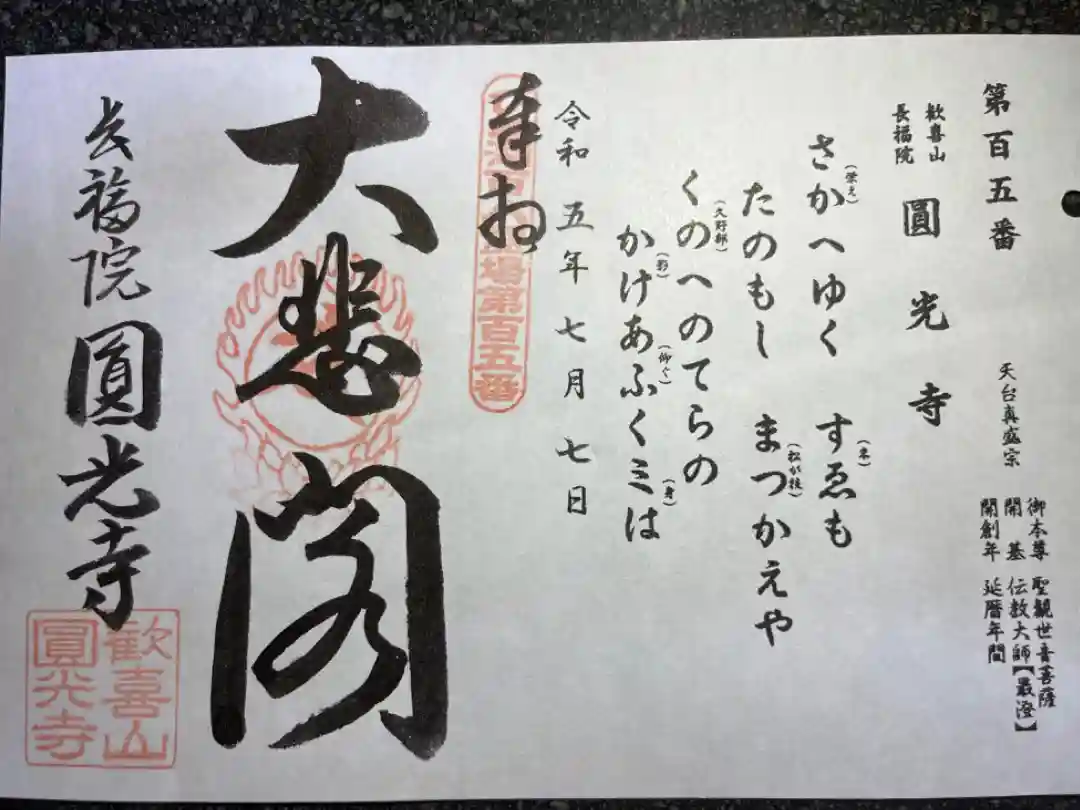 第百五番
歓喜山
長福院
圓光寺
天台真盛宗
御本尊 聖観世音菩薩
開基 伝教大師【最澄】
開創年 延暦年間
さかへゆく すゑも
(栄え)
(末)
たのもし まつかえや
(松が枝)
くのへのてらの
(久野部)
かけあふくミは
(影)
(仰ぐ)
(身)
令和五年七月七日
奉拝
場第百五番
大悲閣
長福院圓光寺
歓喜山
圓光寺